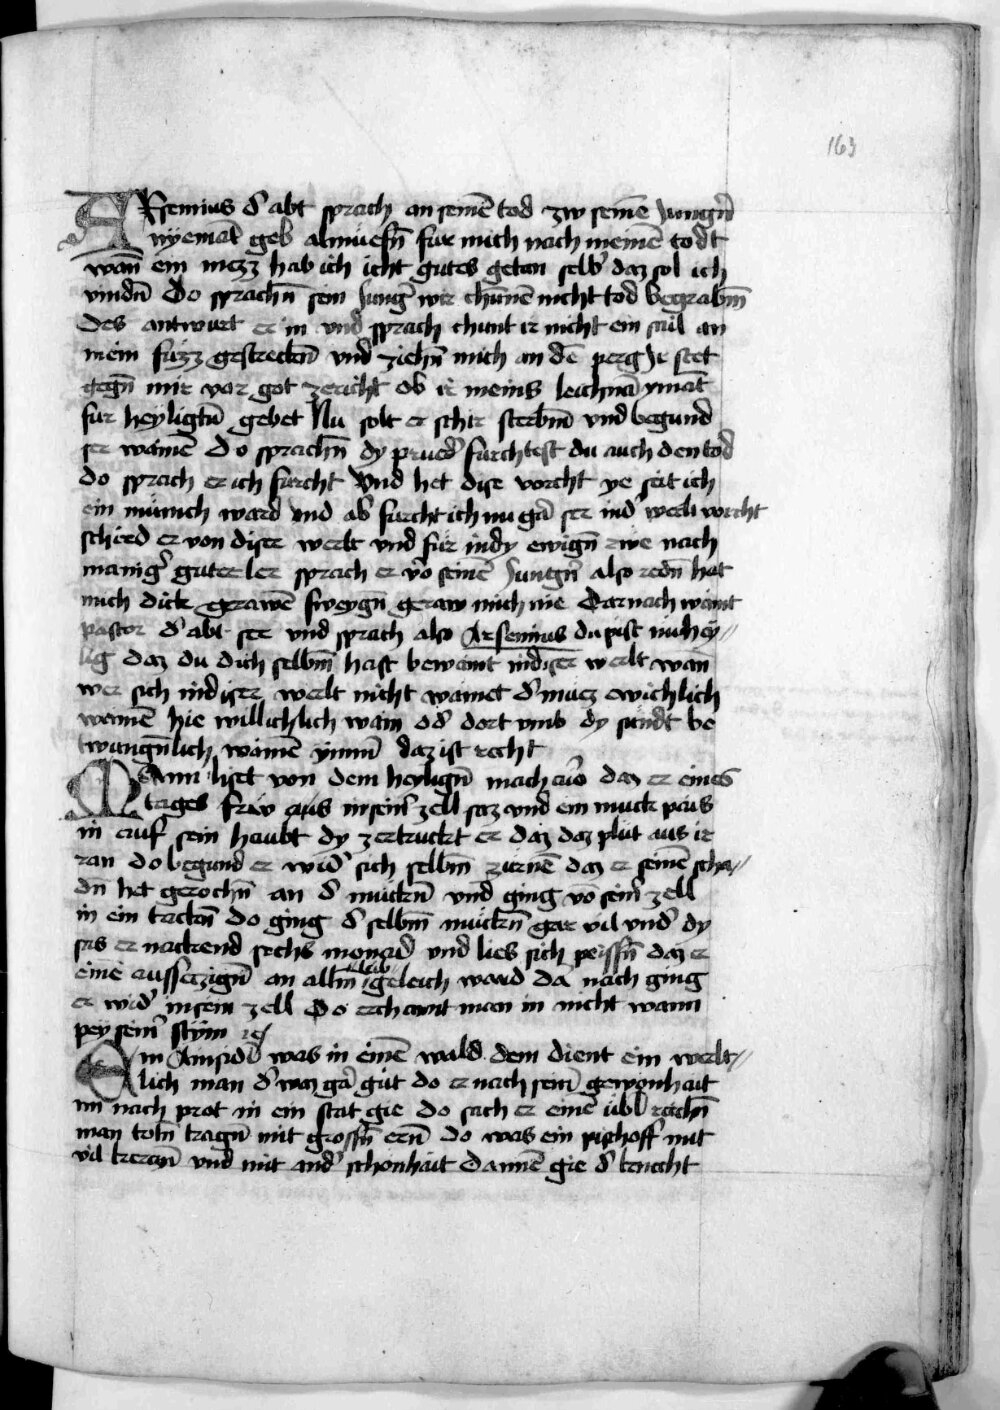 163
ARsenius d' abt sprach an seinē tod zw seinē Jungn̄
nyemāt geb almüesn̄ fur mich nach meinē todt
wan̄ ein mezz hab ich icht gutes getan selb' daz sol ich
vindn̄ Do sprachn̄ sein Jung' wir chūnē nicht tod begrabn̄
Des antwurt er in vnd sprach chunt ir nicht ein sail an
mein füzz gestreckn̄ vnd ziehn̄ mich an dē perg Ir stet
gegn̄ mir vor got zericht ob ir meins leichnā ymāt
fur heyligtū gebet Nu solt er schir sterbn̄ vnd begund
ser wainē Do sprachn̄ dy prued' furchtest du auch den tod
do sprach er ich furcht Vnd het dise vorcht ye seit ich
ein münich ward vnd ab' furcht ich nu gar ser in d' werlt vorcht
schied er von diser werlt vnd für in dy ewign̄ rwe nach
manig' guter ler sprach er vō seinē Jungn̄ also redn̄ hat
mich dick gerawē sweygn̄ geraw mich nie Darnach waint
pastor d' abt ser vnd sprach also Arsenius du pist nu hey〃
lig daz du dich selbm̄ hast bewaint in diser werlt wan̄
wer sich in diser werlt nicht wainet d' müez ewichlich
wainē hie willichlich wain od' dort vmb dy sündt be
twungn̄lich wainē ymm̄ daz ist recht
MAnn liset von dem heylign̄ machario daz er eines
tages frw aus in sein' zell saz vnd ein muck pais
in auf sein haubt dy zertruckt er daz daz plüt aus ir
ran do begund er wid' sich selbm̄ zurnē daz er seinē scha〃
dn̄ het gerochn̄ an d' muckn̄ vnd ging vō sein' zell
in ein lackn̄ do ging d' selbm̄ muckn̄ gar vil vnd' dy
sas er nackend sechs moneid vnd lies sich peissn̄ daz er
einē aussetzign̄ an allm̄ leib geleich ward Da nach ging
er wid' in sein zell Do erchannt man in nicht wann
pey sein' stym̄ rc̄
Ein Ainsidl was in einē wald dem dient ein werlt〃
lich man d' waz gar güt do er nach sein' gewonhait
im nach prot in ein stat gie do sach er einē übl reichn̄
man totn̄ tragn̄ mit grossn̄ ern̄ do was ein pischoff mit
vil kerczn̄ vnd mit and' schonhait Dannē gie d' knecht